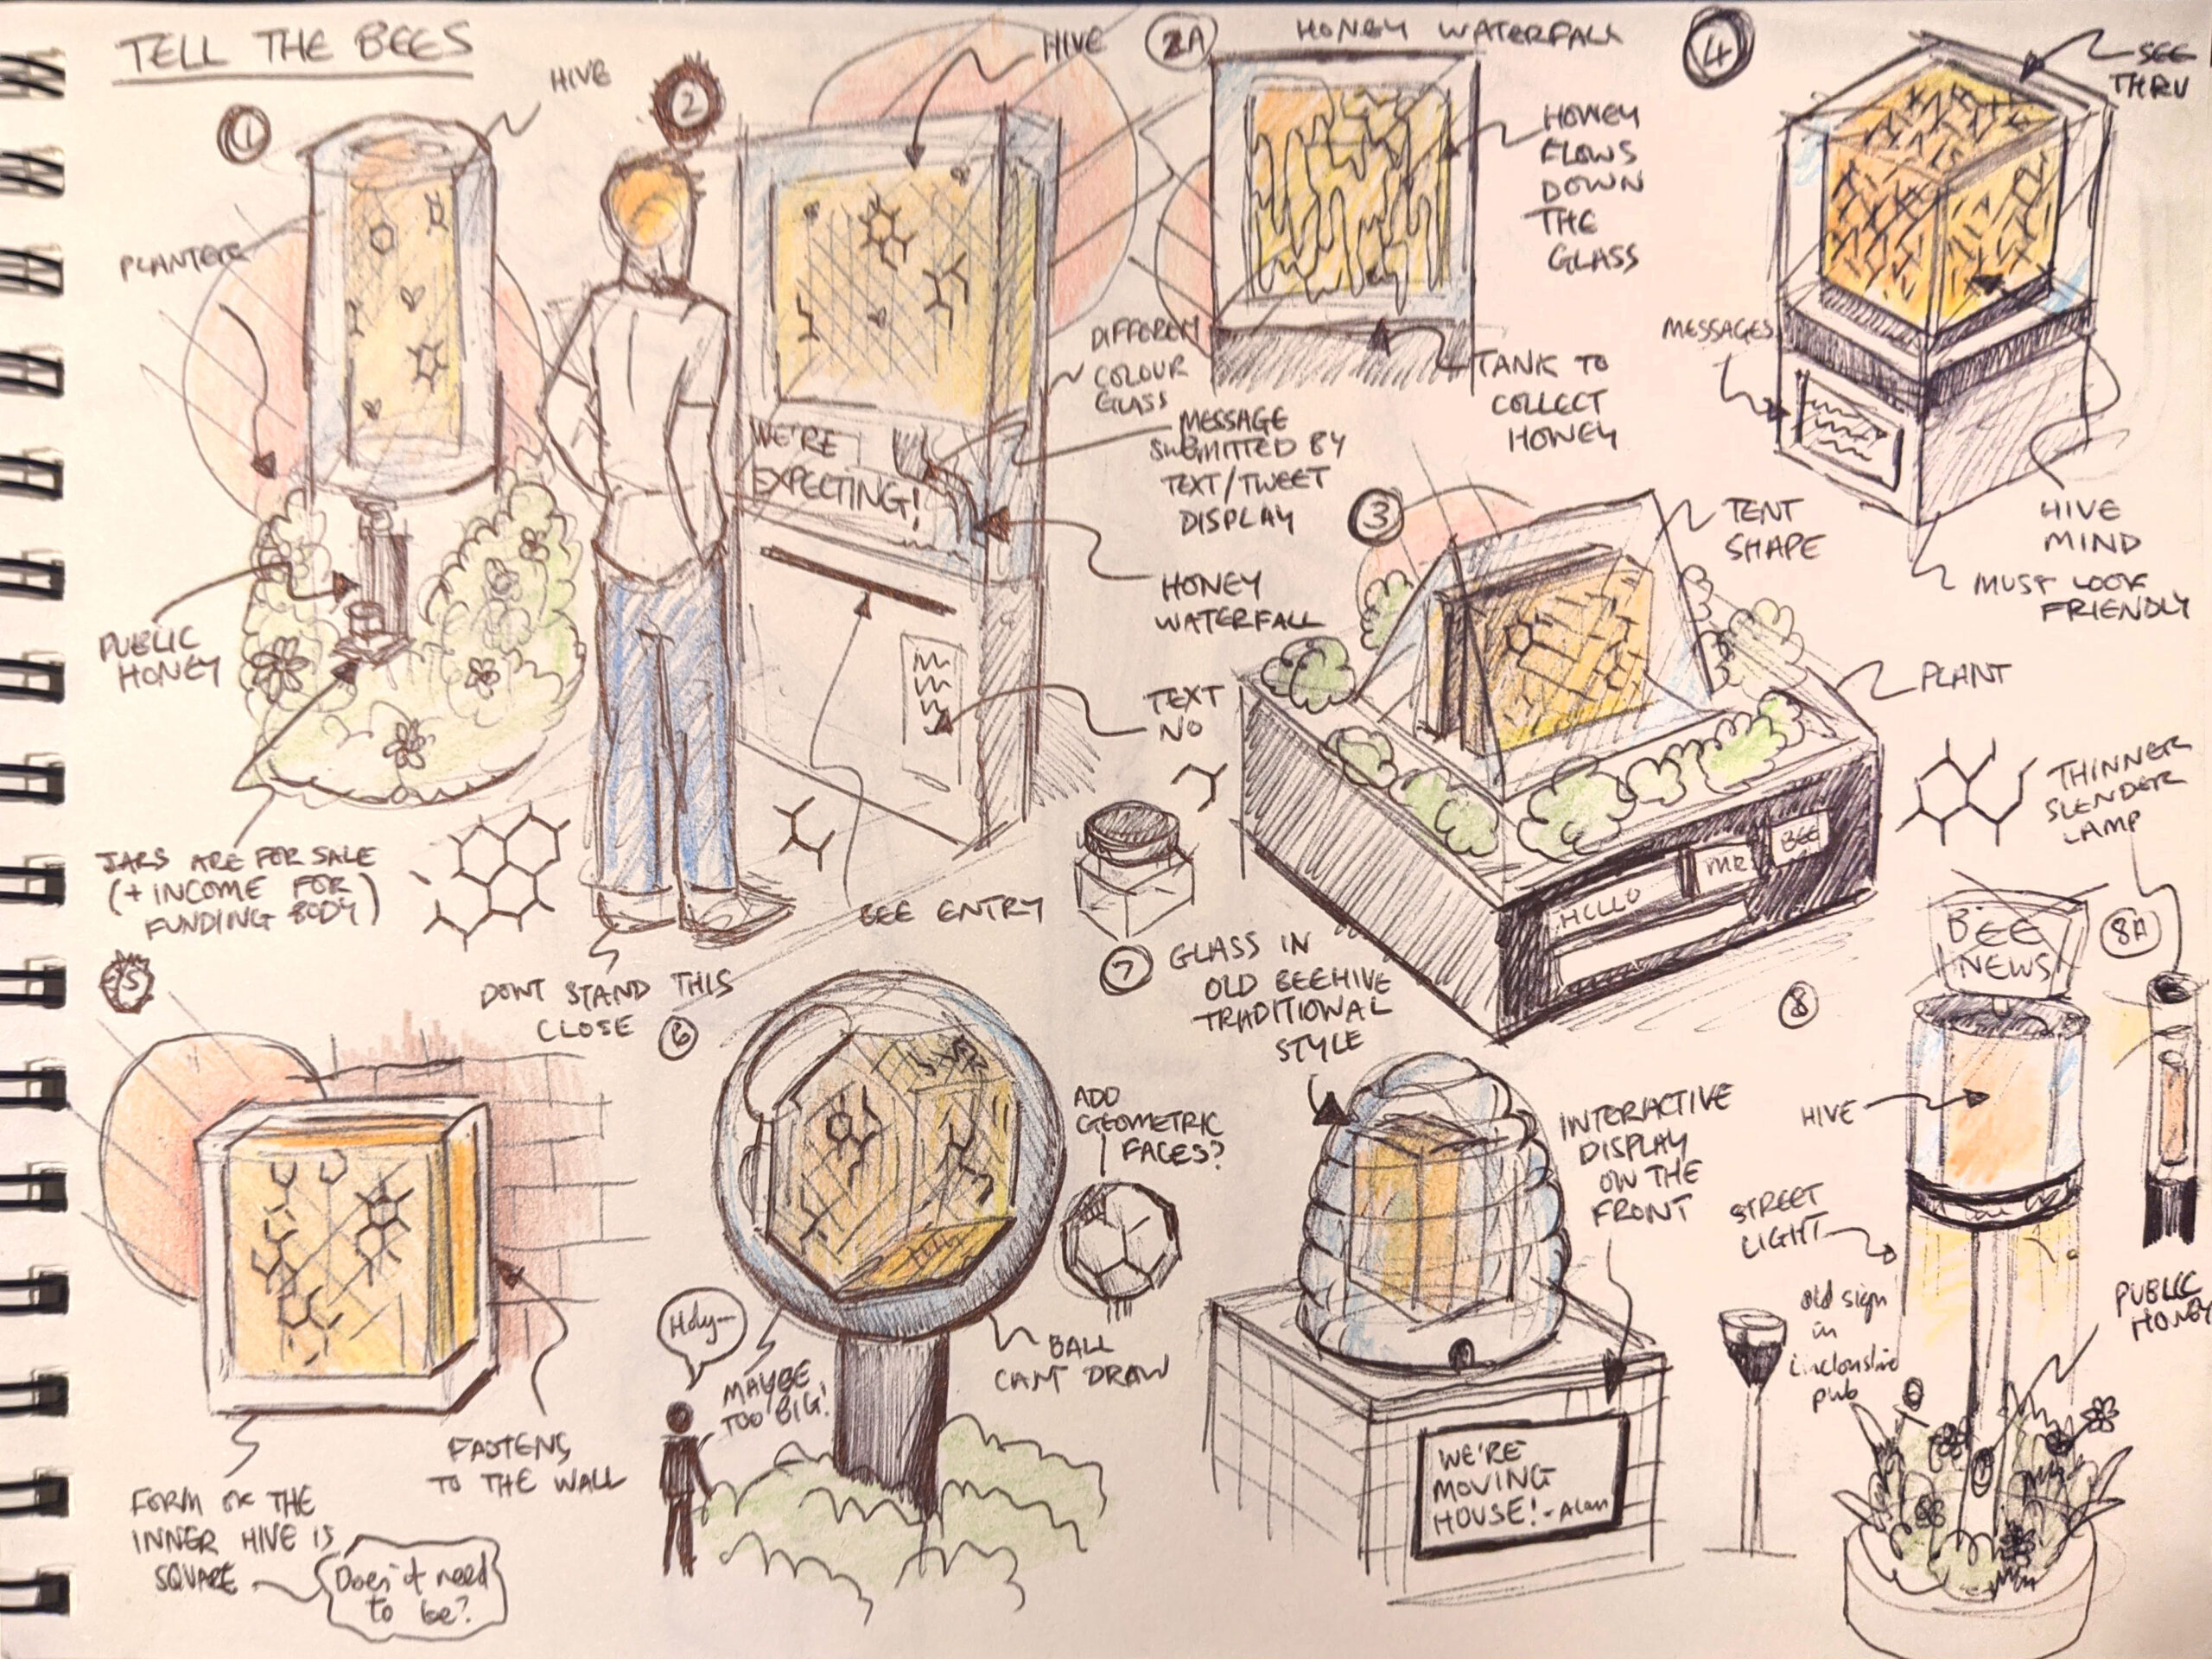 TELL THE BEES
1
HIVE
PLANTER
PUBLIC
HONEY
JARS ARE FOR SALE
(+ INCOME FOR
FUNDING BODY)
2
HIVE
DIFFERENT
COLOUR
GLASS
WE'RE
EXPECTING!
MESSAGE
SUBMITTED BY
TEXT/TWEET
DISPLAY
HONEY
WATERFALL
TEXT
NO
BEE ENTRY
DONT STAND THIS
CLOSE
2A
HONEY WATERFALL
HONEY
FLOWS
DOWN
THE
GLASS
TANK TO
COLLECT
HONEY
4
SEE
THRU
MESSAGES
HIVE
MIND
MUST LOOK
FRIENDLY
3
TENT
SHAPE
PLANT
HELLO
MR
BEE
5
FASTENS
TO THE WALL
FORM OF THE
INNER HIVE IS
SQUARE
Does it need
to be?
6
ADD
GEOMETRIC
FACES?
BALL
CANT DRAW
MAYBE
TOO BIG!
7
GLASS IN
OLD BEEHIVE
TRADITIONAL
STYLE
INTERACTIVE
DISPLAY
ON THE
FRONT
WE'RE
MOVING
HOUSE! - Alan
8
BEE
NEWS
HIVE
STREET
LIGHT
Old sign
in
Lincolnshire
pub
PUBLIC
HONEY
8A
THINNER
SLENDER
LAMP